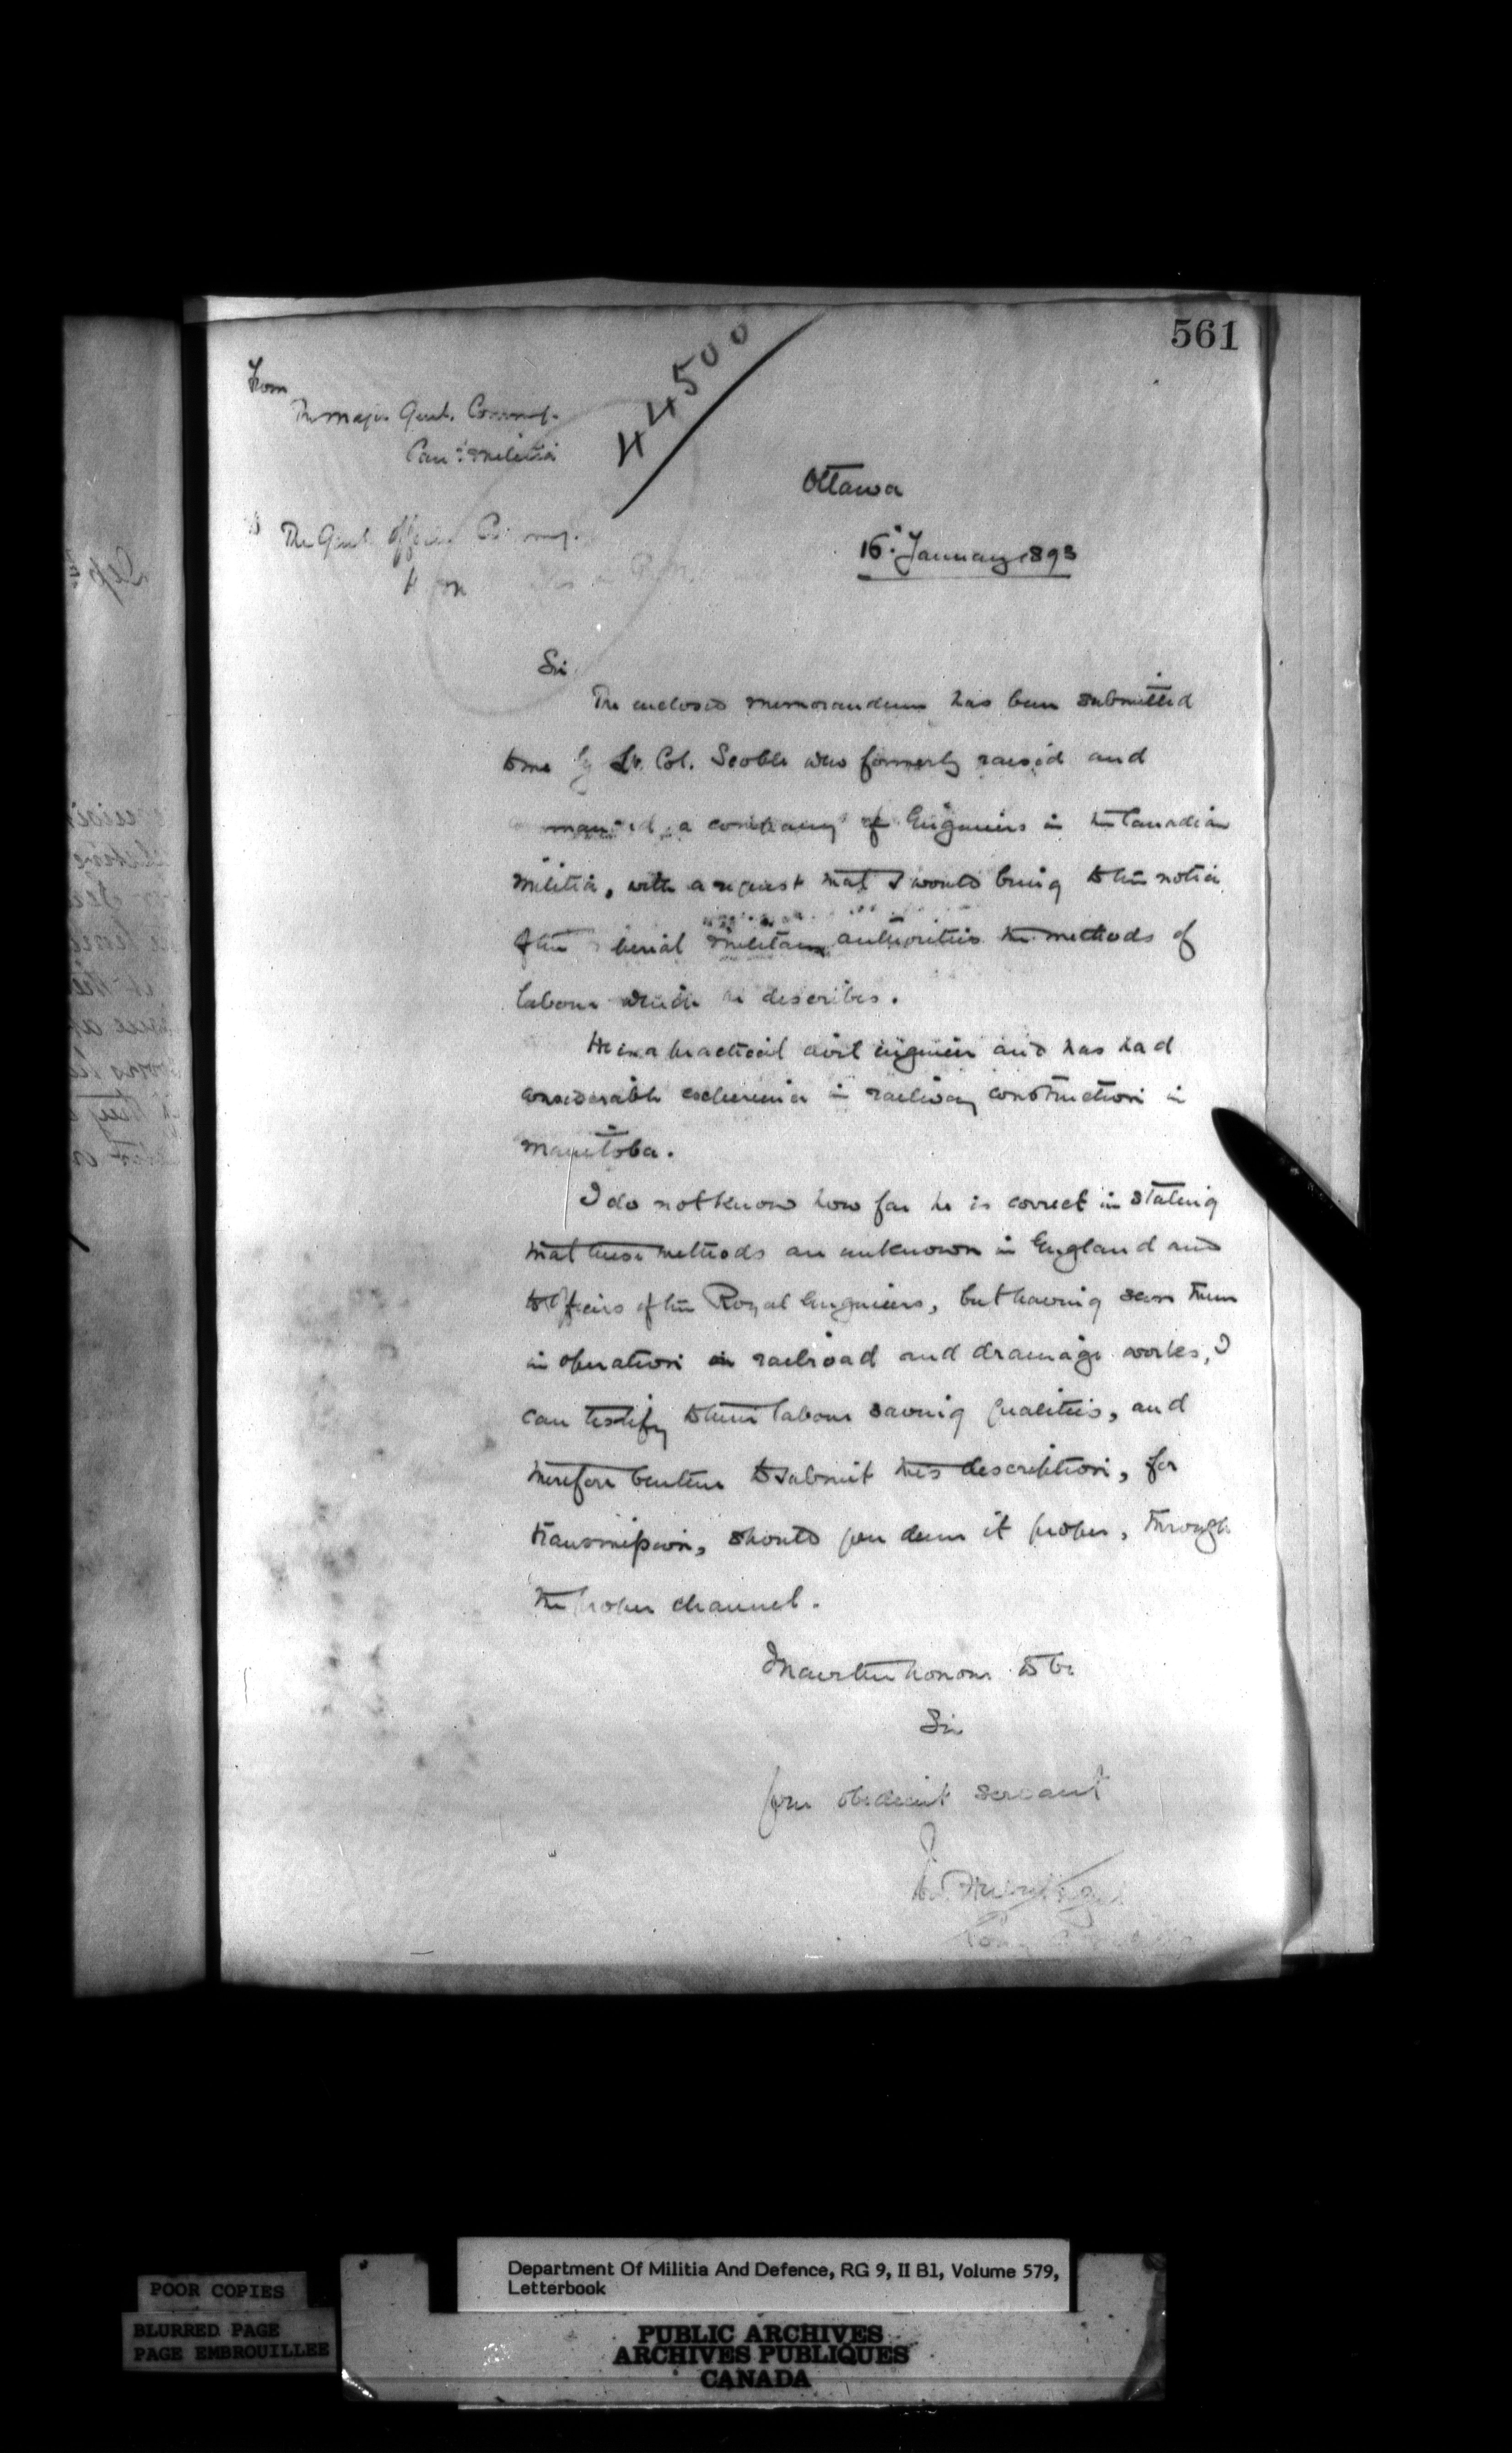 561
44500
From
The Major Genl. Commg.
Can: Militia
Ottawa
16. January 1893
The Genl. Officer Commg.
Sir
The enclosed memorandum has been submitted
to me by Lt. Col. Scoble who formerly raised and
a company of Engineers in the Canadian
Militia, with a request that I would bring to the notice
of the military authorities the methods of
labour which he describes.
He is a practical civil engineer and has had
considerable experience in railway construction in
Manitoba.
I do not know how far he is correct in stating
that these methods are unknown in England and
to Officers of the Royal Engineers, but having seen them
in operation in railroad and drainage works, I
can testify to their labour saving qualities, and
therefore venture to submit this description, for
transmission, should you deem it proper, through
the proper channel.
I have the honour to be
Sir
Your obedient servant
Department Of Militia And Defence, RG 9, II B1, Volume 579,
Letterbook
POOR COPIES
BLURRED PAGE
PAGE EMBROUILLEE
PUBLIC ARCHIVES
ARCHIVES PUBLIQUES
CANADA